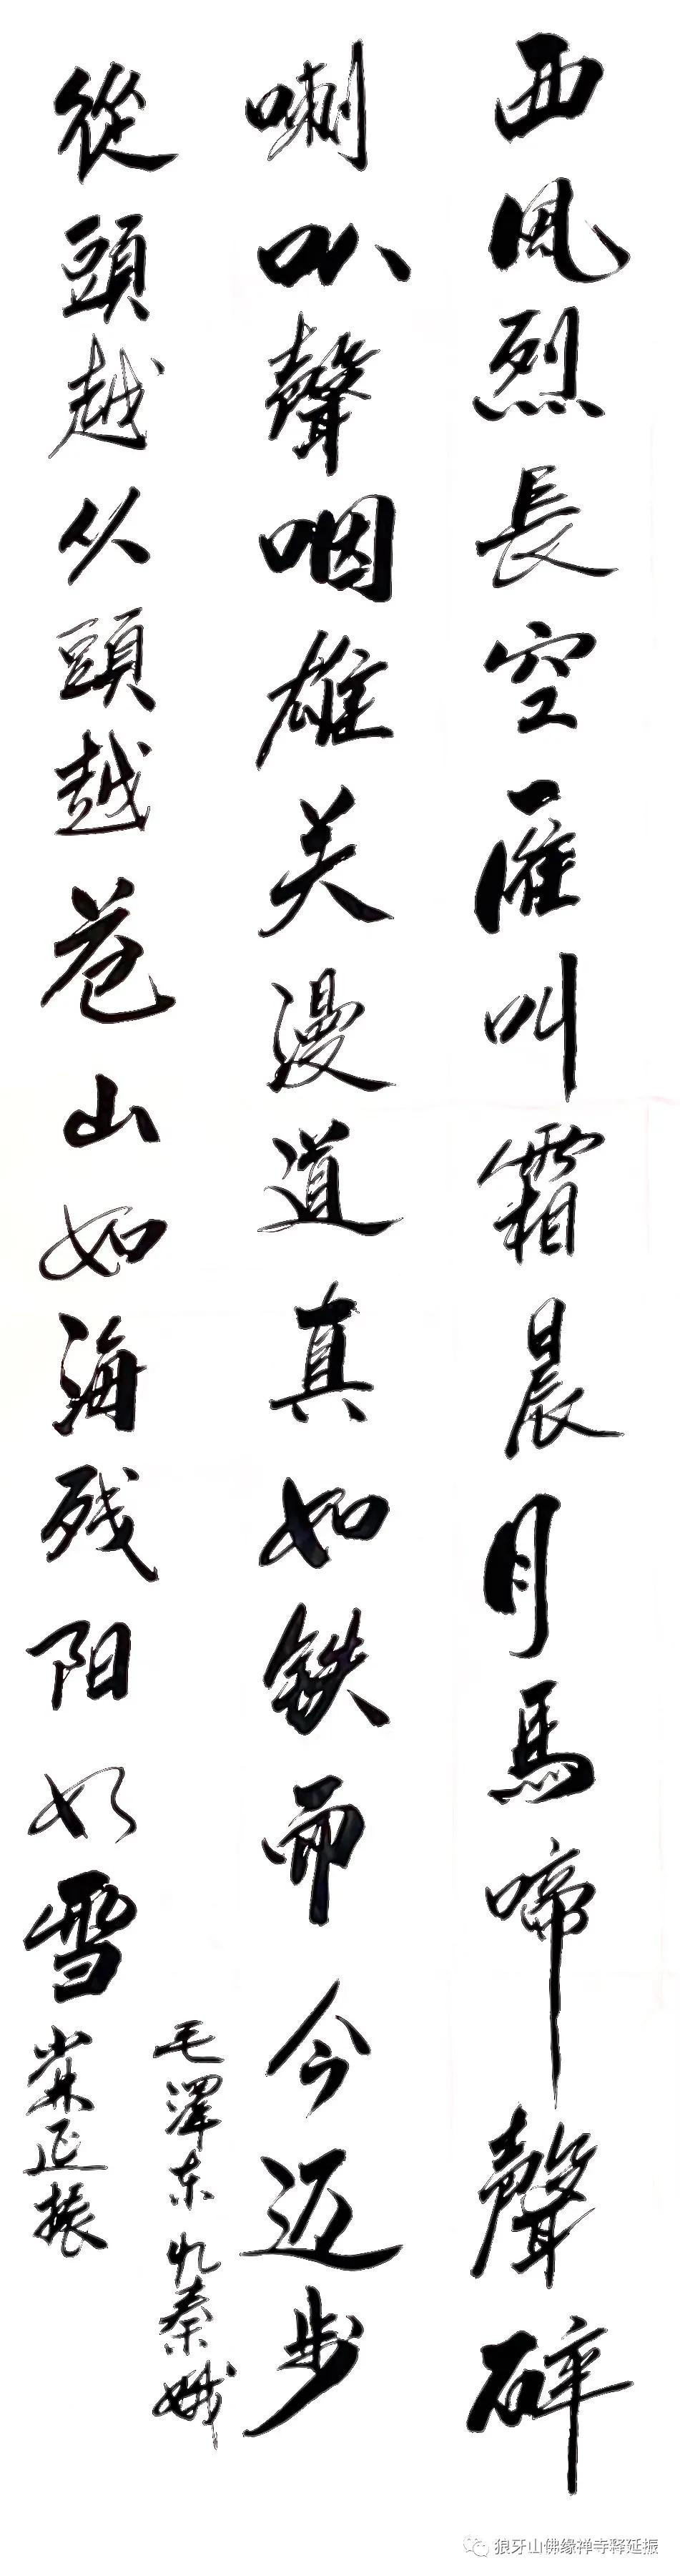 西風烈長空雁叫霜晨月馬啼聲碎
喇叭聲咽雄关漫道真如铁而今迈步
從頭越从頭越苍山如海残阳如雪
毛澤东忆秦娥
少林延振
狼牙山佛缘禅寺释延振